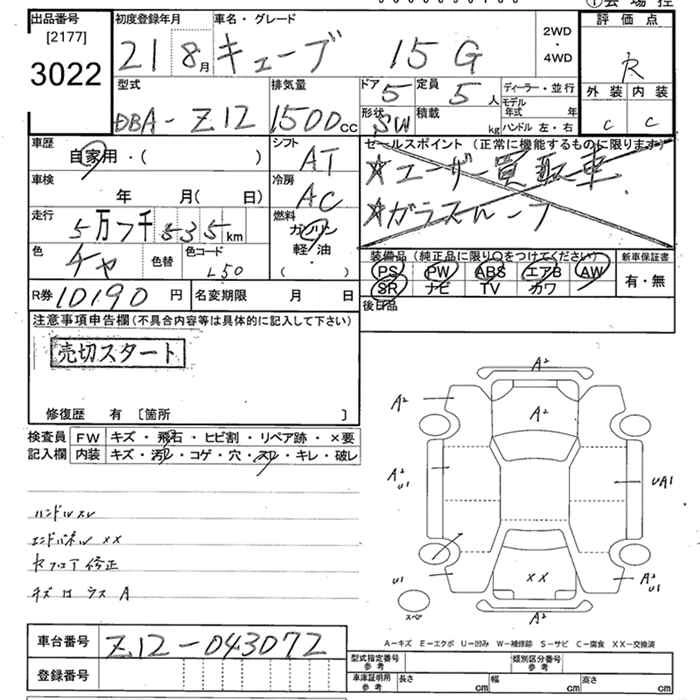 出品番号
[2177]
3022
初度登録年月
21 8月
車名・グレード
キューブ 15G
2WD
・
4WD
評価点
R
外装 内装
C C
型式
DBA-Z12
排気量
1500cc
ドア
5
定員
5人
形状
SW
積載
kg
ディーラー・並行
モデル年式 年
ハンドル 左・右
車歴
自家用・( )
シフト
AT
セールスポイント (正常に機能するものに限ります)
☆ユーザー買取車
☆ガラスルーフ
車検
年 月( 日)
冷房
AC
走行
5万7千535km
燃料
ガソリン
軽・油
( )
色
チャ
色替
色コード
L50
装備品(純正品に限り○をつけてください)
PS PW ABS エアB AW
SR ナビ TV カワ
新車保証書
有・無
後日品
R券 10190円
名変期限 月 日
注意事項申告欄(不具合内容等は具体的に記入して下さい)
売切スタート
修復歴 有 [箇所 ]
検査員
記入欄
FW キズ・飛石・ヒビ割・リペア跡・×要
内装 キズ・汚レ・コゲ・穴・スレ・キレ・破レ
ハンドルスレ
エンドパネル××
キズ
A
A2
A2
A2
A2
U1
UA1
U1
××
A2
U1
A2
スペア
A-キズ E-エクボ U-凹み W-補修跡 S-サビ C-腐食 XX-交換済
車台番号
Z12-043072
登録番号
型式指定番号
参考
類別区分番号
参考
車庫証明用
参考
長さ cm
幅 cm
高さ cm